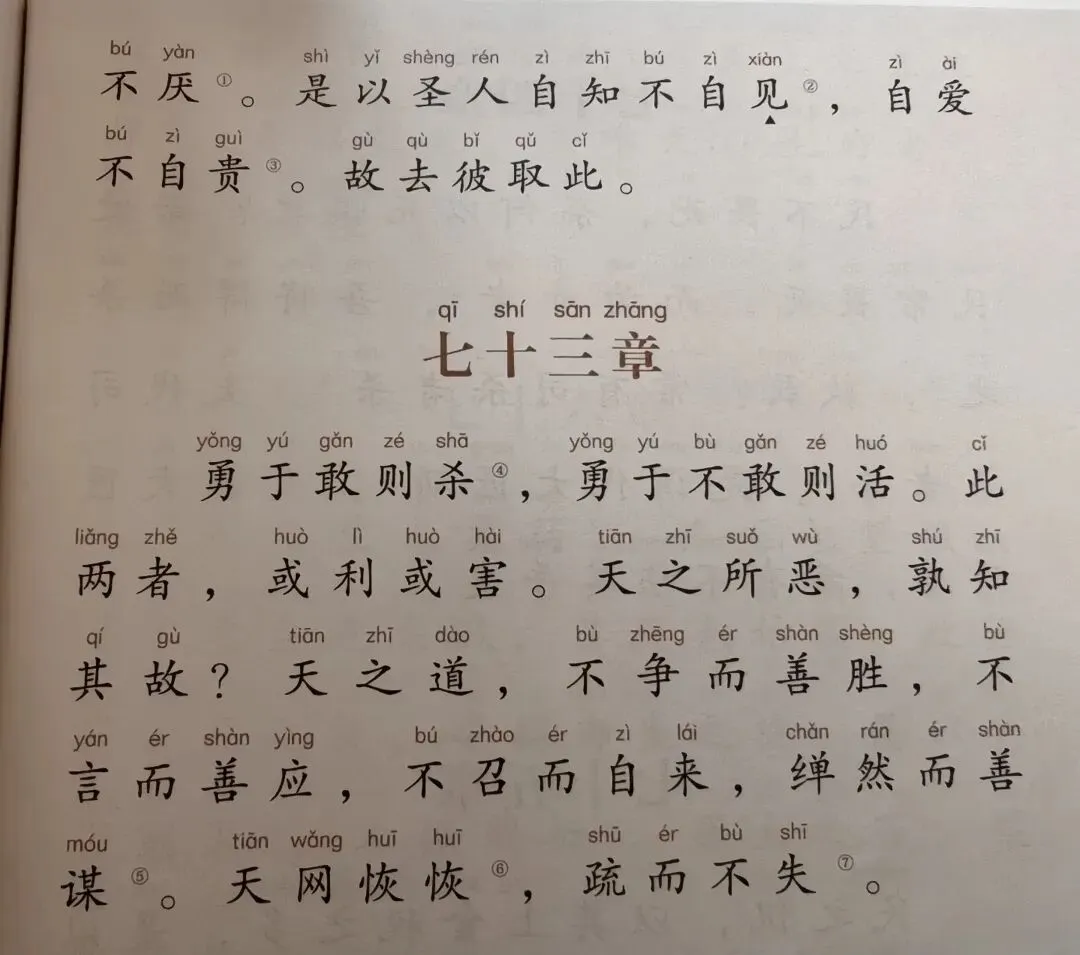 bú yàn shì yǐ shèng rén zì zhī bú zì xiàn zì ài
不厌①。是以圣人自知不自见②，自爱
bú zì guì gù qù bǐ qǔ cǐ
不自贵③。故去彼取此。
qī shí sān zhāng
七十三章
yǒng yú gǎn zé shā yǒng yú bù gǎn zé huó cǐ
勇于敢则杀④，勇于不敢则活。此
liǎng zhě huò lì huò hài tiān zhī suǒ wù shú zhī
两者，或利或害。天之所恶，孰知
qí gù tiān zhī dào bù zhēng ér shàn shèng bù
其故？天之道，不争而善胜，不
yán ér shàn yìng bú zhào ér zì lái chǎn rán ér shàn
言而善应，不召而自来，繟然而善
móu tiān wǎng huī huī shū ér bù shī
谋⑤。天网恢恢⑥，疏而不失⑦。